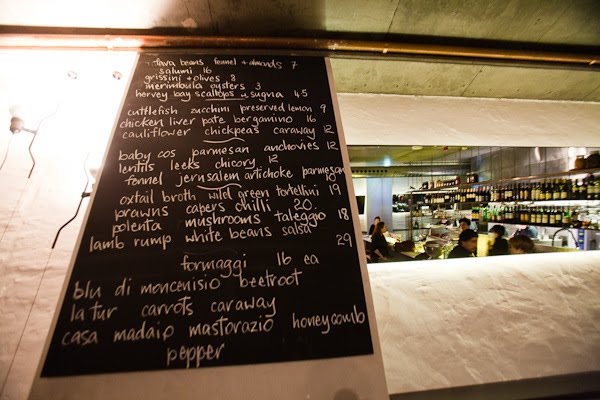 fava beans fennel + almonds 7
salumi 16
grissini + olives 8
merimbula oysters 3
hervey bay scallops sugna 4.5
cuttlefish zucchini preserved lemon 9
chicken liver pate bergamino 16
cauliflower chickpeas caraway 12
baby cos parmesan anchovies 12
lentils leeks chicory 12
fennel jerusalem artichoke parmesan 10
oxtail broth wild green tortellini 19
prawns capers chilli 20
polenta mushrooms taleggio 18
lamb rump white beans salsa 29
formaggi 16 ea
blu di moncenisio beetroot
la tur carrots caraway
casa madaio mastorazio honeycomb
pepper